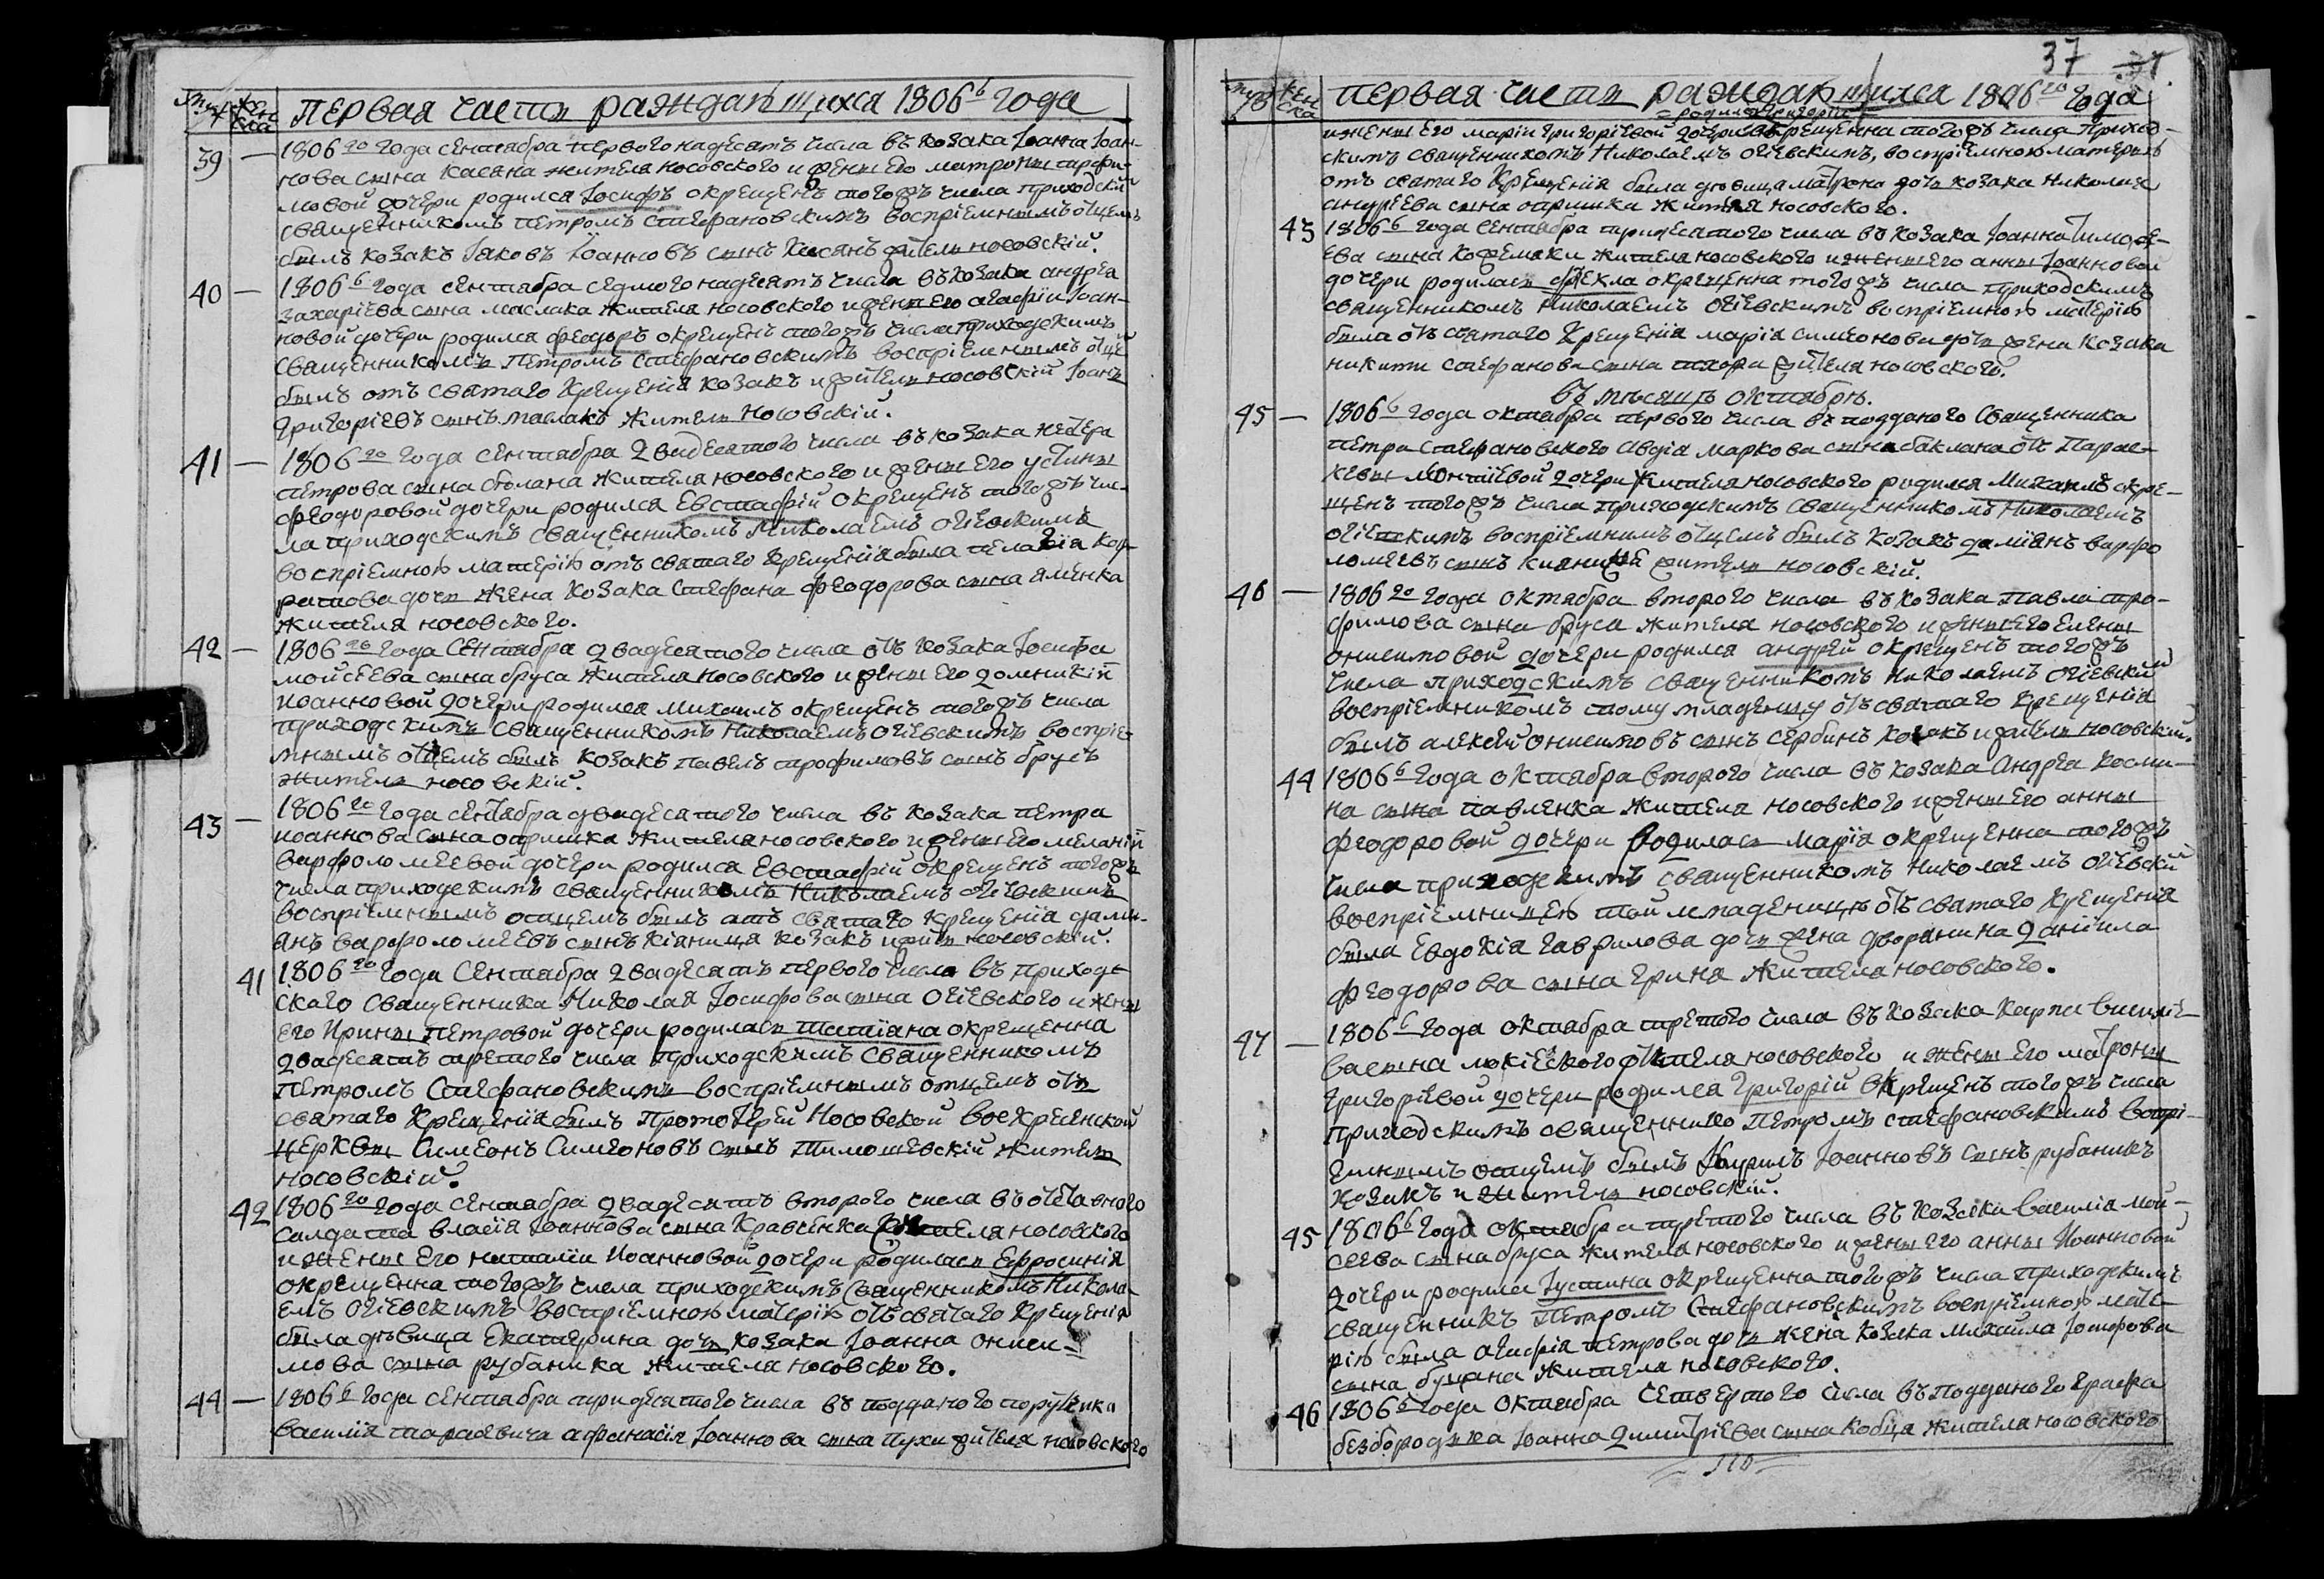 Муж
Женска
Первая часть раждающихся 1806 б года
39 — 1806 го года сентября первого надесять числа въ козака Іоанна Іоан-
нова сына Касяна жителя носовского и жены его матроны парфи-
мовой дочери родился Іосифъ окрещенъ тогожъ числа приходскій
священникомъ Петромъ Стефановскимъ воспріемнымъ отцемъ
былъ козакъ Іяковъ Іоанновъ сынъ Касянъ житель носовскій.
40 — 1806 б года сентября седмого надесять числа въ козака андрея
захаріева сына маслака жителя носовского и жены его агафіи Іоан-
новой дочери родился феодоръ окрещенъ тогожъ числа приходскимъ
священникомъ Петромъ Стефановскимъ воспріемнымъ отце
былъ отъ святаго крещенія козакъ и житель носовскій Іоанъ
григоріевъ сынъ маслакъ житель носовскій.
41 — 1806 го года сентября двадесятого числа въ козака
петрова сына жителя носовского и жены его устины
феодоровой дочери родился Евстафій окрещенъ тогожъ чис-
ла приходскимъ священникомъ Николаемъ Огіевскимъ
воспріемною матерію отъ святаго крещенія была пелагія Кор-
дочь жена козака Стефана феодорова сына яменка
жителя носовского.
42 — 1806 го года Сентября двадесятого числа отъ козака Іосифа
мойсеева сына бруса жителя носовского и жены его домникіи
иоанновой дочери родился михаилъ окрещенъ тогожъ числа
приходскимъ священникомъ Николаемъ Огіевскимъ воспріе-
мнымъ отцемъ былъ козакъ павелъ трофимовъ сынъ брусъ
житель носовскій.
43 — 1806 го года сентября двадесятого числа въ козака петра
иоаннова сына опришка жителя носовского и жены его меланіи
варфоломеевой дочери родился Евстафій окрещенъ тогожъ
числа приходскимъ священникомъ Николаемъ Огіевскимъ
воспріемнымъ отцемъ былъ отъ святаго крещенія дами-
янъ варфоломеевъ сынъ кіяница козакъ и житель носовскій.
41 1806 го года Сентября двадесять первого числа въ приход-
ского священника Николая Іосифова сына Огіевского и жены
его Ирины Петровой дочери родилась Татіана окрещенна
двадесять третого числа приходскимъ священникомъ
Петромъ Стефановскимъ воспріемнымъ отцемъ отъ
святаго крещенія былъ Протоіерей Носовской воскресенской
церквы Симеонъ Симеоновъ сынъ Тимошевскій житель
носовскій.
42 1806 го года сентября двадесять второго числа въ отставного
салдата власія Іоаннова сына Кравченка жителя носовского
и жены его наталіи Иоанновой дочери родилась Ефросинія
окрещенна тогожъ числа приходскимъ священникомъ Никола-
емъ Огіевскимъ воспріемною матерію отъ святаго крещенія
была дѣвица Екатерина дочь козака Іоанна ониси-
мова сына рубаника жителя носовского.
44 — 1806 б года сентября тридесятого числа въ подданого поручика
василія тарасевича афанасія Іоаннова сына Пухи жителя носовского
37 37
Муж
Женска
Первая часть раждающихся 1806 го года
родился Григорій
и жены его маріи григоріевой дочери окрещенна тогожъ числа приход-
скимъ священникомъ Николаемъ Огіевскимъ, воспріемною матерію
отъ святаго крещенія была дѣвица матрона дочь козака Николая
андреева сына опришка жителя носовского.
43 1806 б года сентября тридесятого числа въ козака Іоанна Тимофе-
ева сына Кожемяки жителя носовского и жены его анны Іоанновой
дочери родилась фекла окрещенна тогожъ числа приходскимъ
священникомъ Николаемъ Огіевскимъ воспріемною матерію
была отъ святаго крещенія марія симеонова дочь жена козака
никиты стефанова сына жителя носовского.
въ мѣсяцѣ октябрѣ.
45 — 1806 б года октября первого числа въ подданого священника
петра Стефановского Авдія маркова сына баклана отъ Парас-
кевы дочери жителя носовского родился Михаилъ окре-
щенъ тогожъ числа приходскимъ священникомъ Николаемъ
Огіевскимъ воспріемнымъ отцемъ былъ козакъ даміянъ варфо
ломеевъ сынъ кияниця житель носовскій.
46 — 1806 го года октября второго числа въ козака павла тро-
фимова сына бруса жителя носовского и жены его елены
онисимовой дочери родился андрей окрещенъ тогожъ
числа приходскимъ священникомъ Николаемъ Огіевскій
воспріемникомъ тому младенцу отъ святаго крещенія
былъ алексей онисимовъ сынъ сербинъ козакъ и житель носовскій.
44 1806 б года октября второго числа въ козака андрея косми-
на сына павленка жителя носовского и жены его анны
феодоровой дочери родилась марія окрещенна тогожъ
числа приходскимъ священникомъ Николаемъ Огіевскій
воспріемницею той младеницы отъ святаго крещенія
была Евдокія гаврилова дочь жена дворянина даніила
феодорова сына грина жителя носовского.
47 — 1806 б года октября третого числа въ козака карпа василіе-
ва сына жителя носовского и жены его матроны
григоріевой дочери родился Григорій окрещенъ тогожъ числа
приходскимъ священнико Петромъ стефановскимъ воспрі-
емнымъ отцемъ былъ Іоанновъ сынъ рубаникъ
козакъ и житель носовскій.
45 1806 б года октября третого числа въ козака василія мой-
сеева сына бруса жителя носовского и жены его анны Иоанновой
дочери родила Іустина окрещенна тогожъ числа приходскимъ
священникъ Петромъ Стефановскимъ воспріемною мате-
рію была агафія петрова дочь жена козака михаила Іосифова
сына буцана жителя носовского.
46 1806 б года Октября четвертого числа въ подданого графа
безбородька Іоанна Димитріева сына кобця жителя носовского